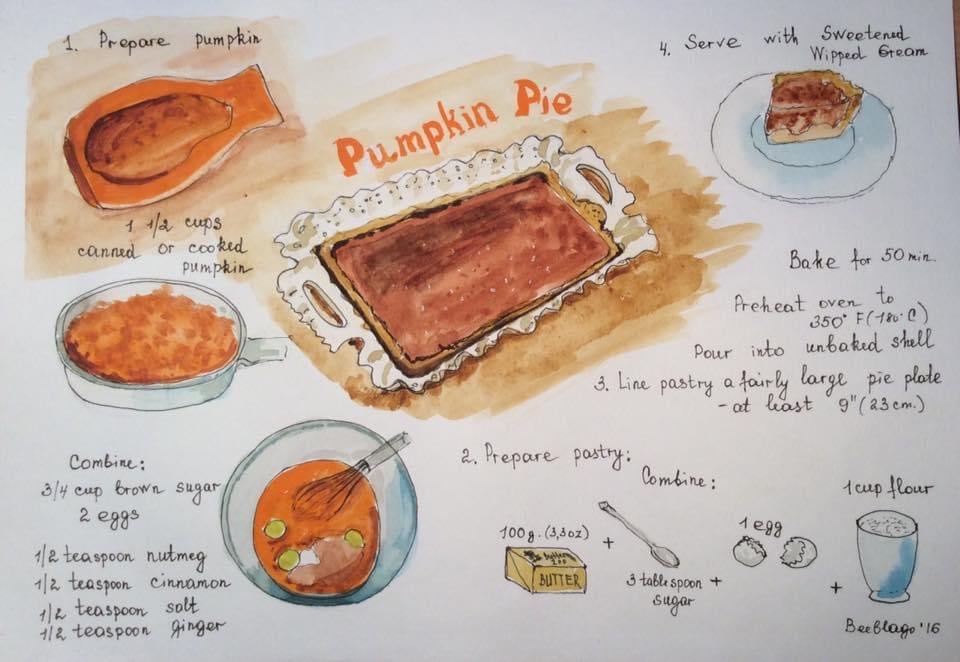 Pumpkin Pie
1. Prepare pumpkin
1 1/2 cups
canned or cooked
pumpkin
Combine:
3/4 cup brown sugar
2 eggs
1/2 teaspoon nutmeg
1/2 teaspoon cinnamon
1/2 teaspoon salt
1/2 teaspoon ginger
2. Prepare pastry:
Combine:
100g. (3,3oz)
BUTTER
+
3 tablespoon
sugar
+
1 egg
+
1 cup flour
3. Line pastry a fairly large pie plate
- at least 9" (23cm.)
Pour into unbaked shell
Preheat oven to
350° F (180° C)
Bake for 50 min.
4. Serve with Sweetened
Wipped Cream
Beeblago '16